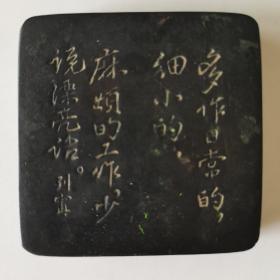 多作日常的,
细小的,
麻烦的工作少
说漂亮话。列宁